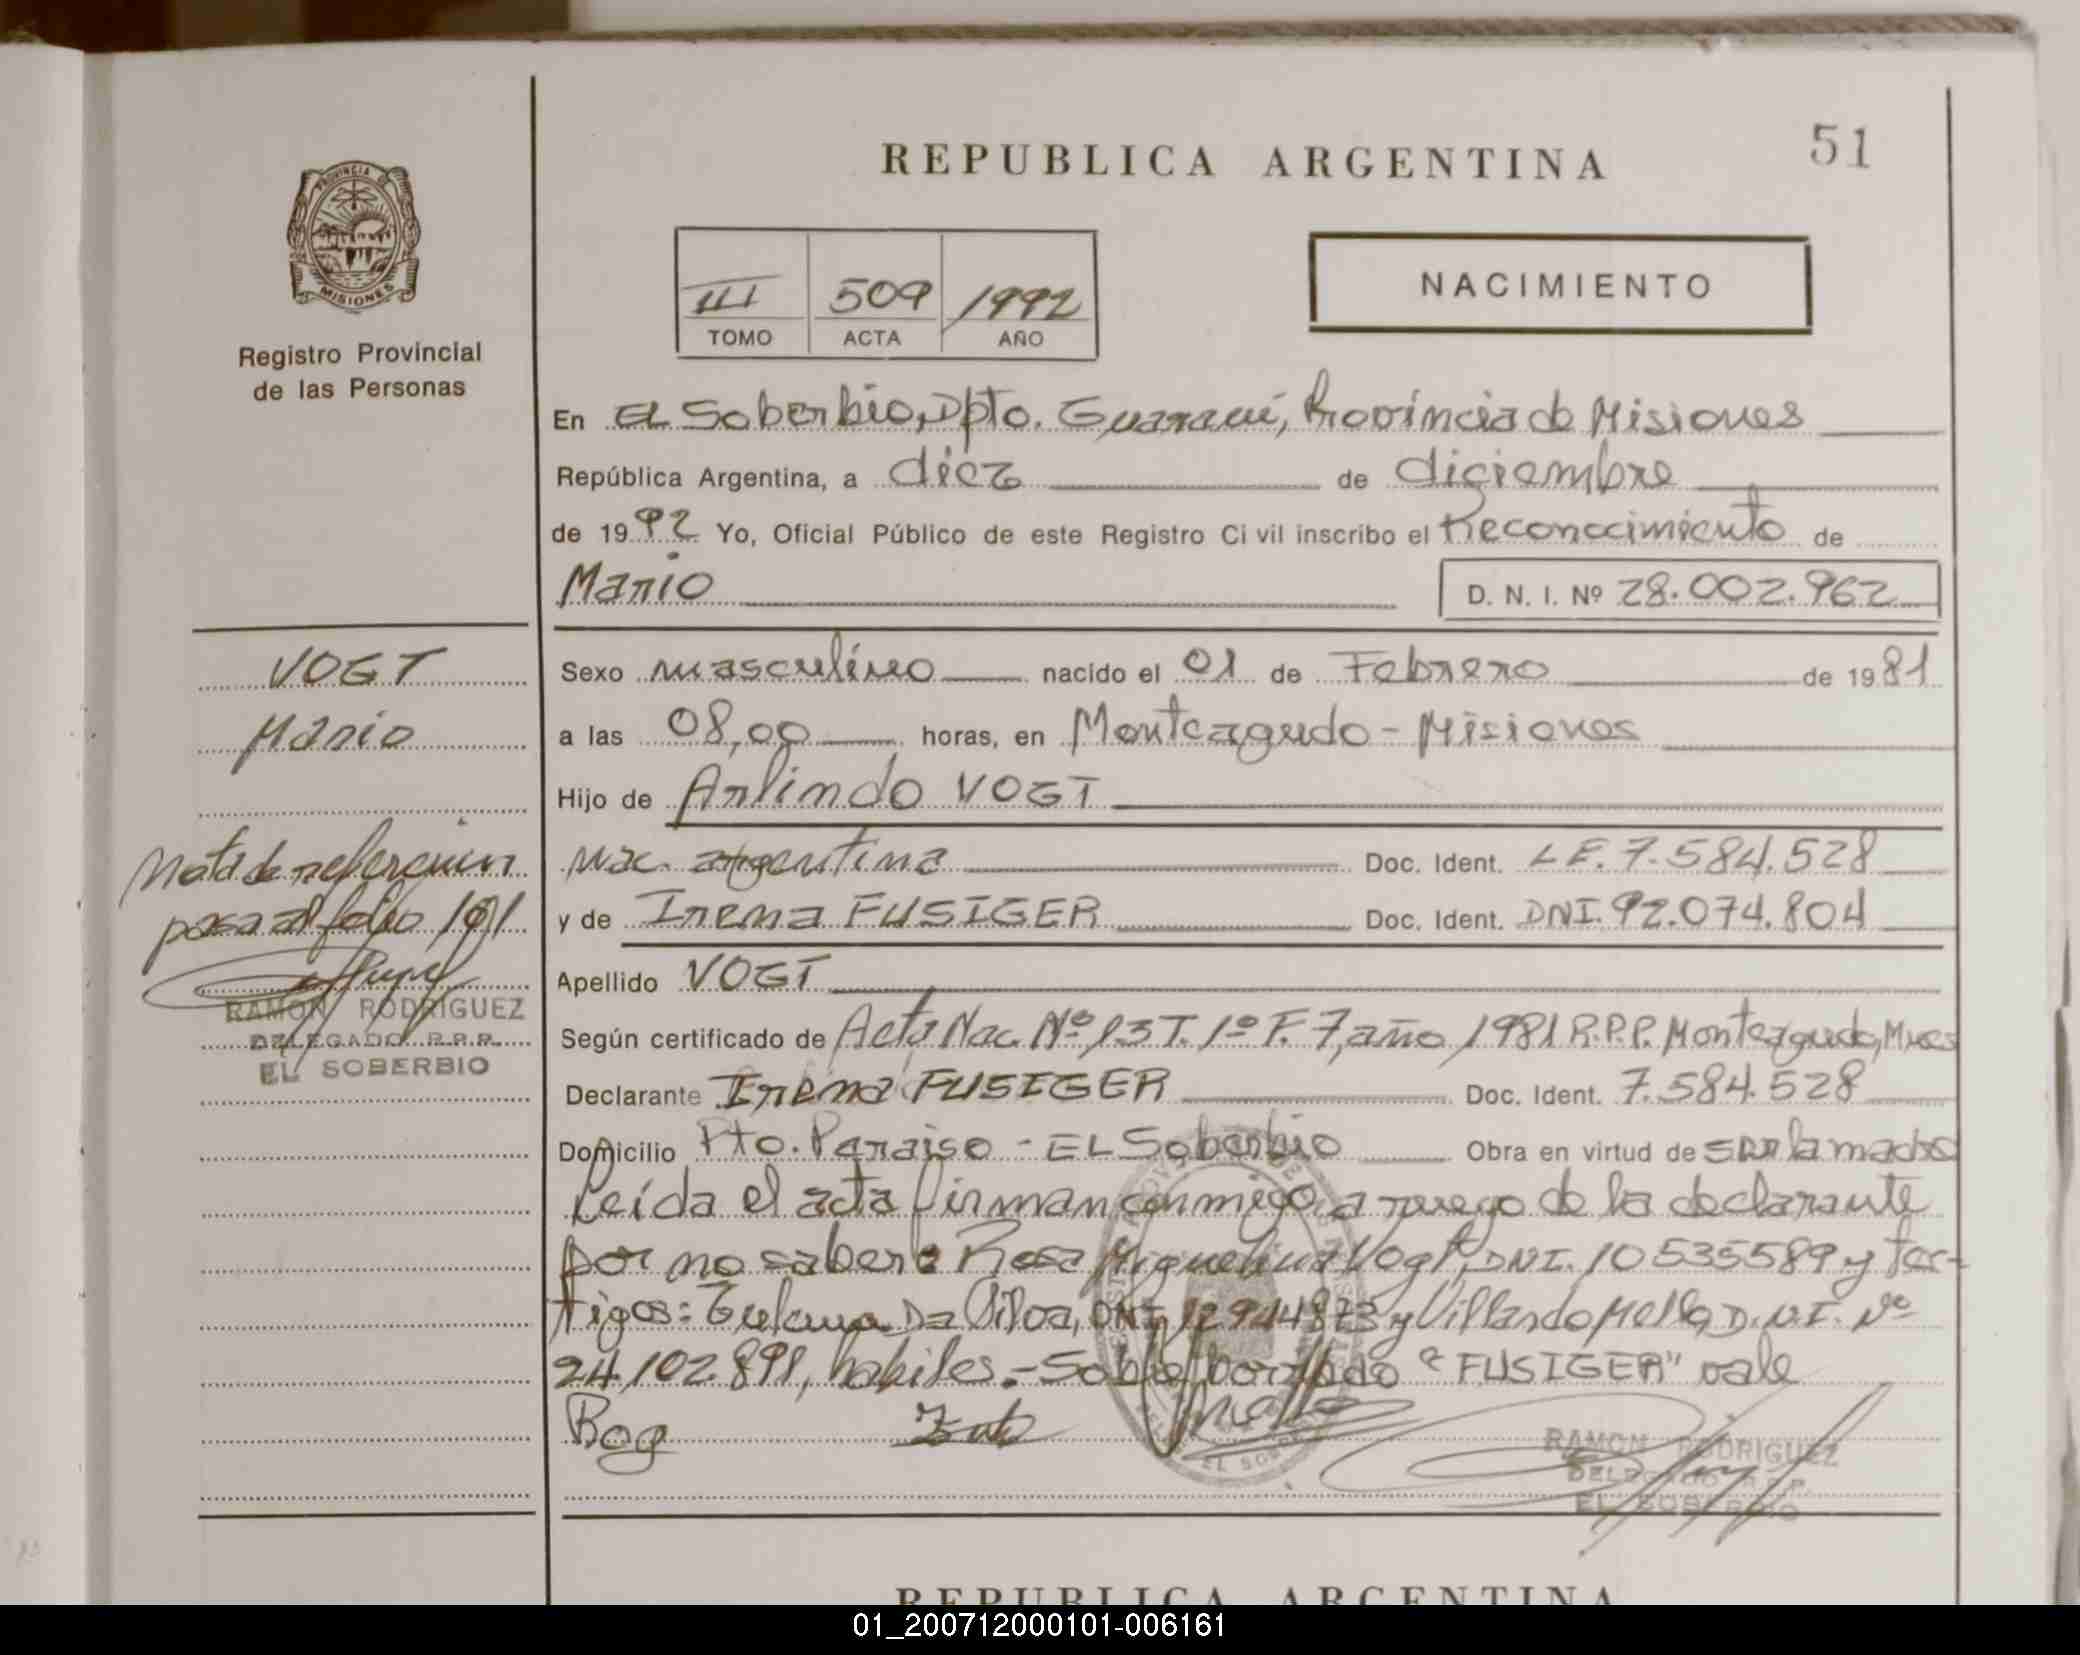 51
REPUBLICA ARGENTINA
PROVINCIA DE
MISIONES
Registro Provincial
de las Personas
III 509 1992
TOMO ACTA AÑO
NACIMIENTO
En EL Soberbio, Dpto. Guaraní, Provincia de Misiones
República Argentina, a diez de diciembre
de 1992 Yo, Oficial Público de este Registro Civil inscribo el Reconocimiento de
Mario D. N. I. Nº 28.002.962
VOGT
Mario
Nota de referencia
pasa al folio 191
RAMON RODRIGUEZ
DELEGADO R.P.P.
EL SOBERBIO
Sexo masculino nacido el 01 de Febrero de 1981
a las 08,00 horas, en Monteagudo - Misiones
Hijo de Arlindo VOGT
nac. argentina Doc. Ident. LE. 7.584.528
y de Irema FUSIGER Doc. Ident. DNI. 92.074.804
Apellido VOGT
Según certificado de Acta Nac. Nº 13 T. 1º F. 7, año 1981 R.P.P. Monteagudo, Mnes
Declarante Irema FUSIGER Doc. Ident. 7.584.528
Domicilio Pto. Paraiso - EL Soberbio Obra en virtud de ser la madre
Leída el acta firman conmigo, a ruego de la declarante
por no saberlo Rosa Miguelina Vogt, DNI. 10535589 y tes-
tigos: Da Silva, DNI 12944873 y Villardo Mello, D.N.I. Nº
24.102.891, habiles.- Sobre borrado "FUSIGER" vale
EL SOBERBIO
RAMON RODRIGUEZ
DELEGADO R.P.P.
EL SOBERBIO
REPUBLICA ARGENTINA
01_200712000101-006161